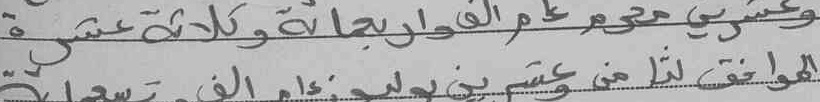 وعشرين محرم عام الف واربعمائة وثلاثة عشرة
الموافق لثامن وعشرين يوليوز عام الف وتسعمائة